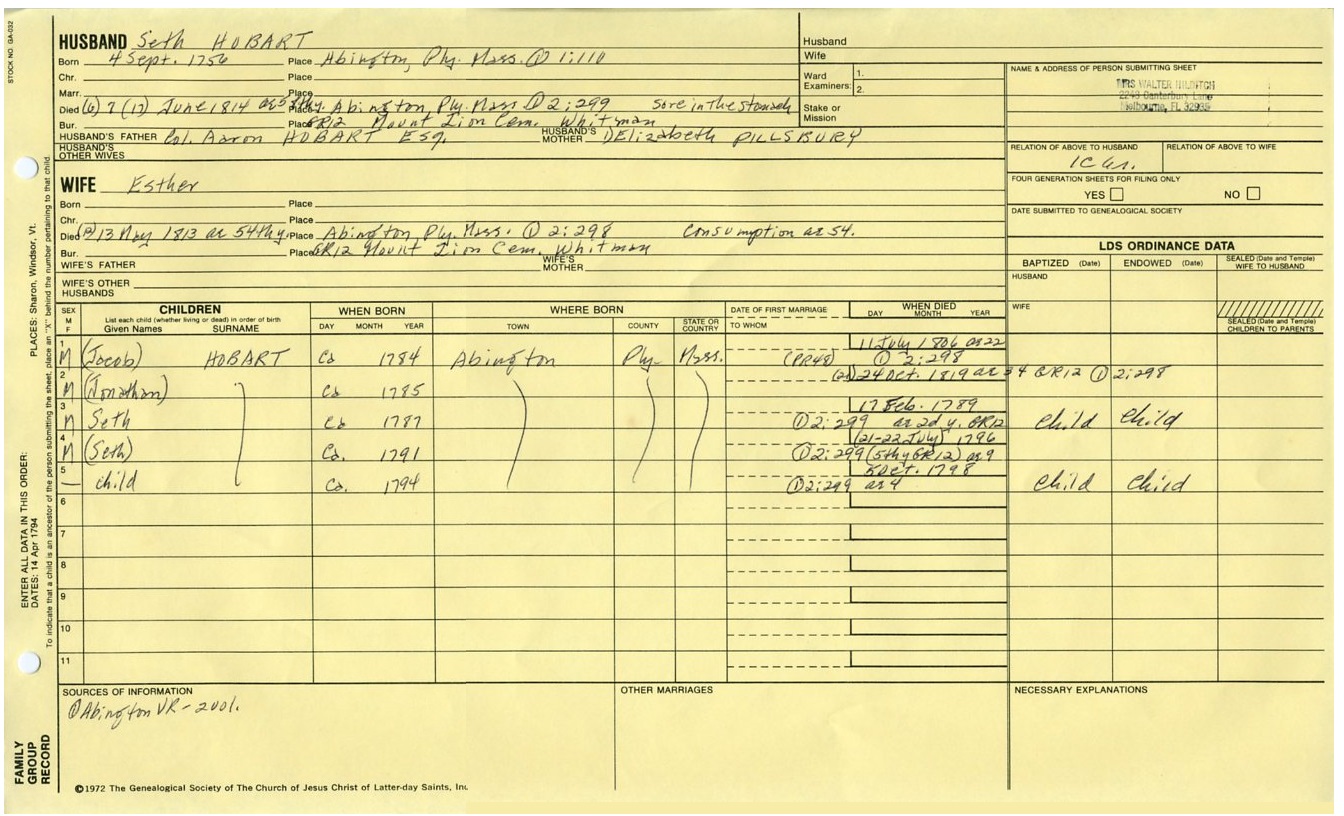 STOCK NO. GA-032
HUSBAND Seth HOBART
Born 4 Sept. 1756 Place Abington, Ply. Mass. ① 1:110
Chr. Place
Marr. Place
Died (6) 7 (17) June 1814 Place Abington, Ply. Mass ① 2:299 Sore in the Stomach
Bur. Place GR12 Mount Zion Cem. Whitman
HUSBAND'S FATHER Col. Aaron HOBART Esq. HUSBAND'S MOTHER Elizabeth PILLSBURY
HUSBAND'S OTHER WIVES
Husband
Wife
Ward Examiners: 1.
2.
Stake or Mission
NAME & ADDRESS OF PERSON SUBMITTING SHEET
MRS WALTER
Canterbury Lane
Melbourne, FL 32935
RELATION OF ABOVE TO HUSBAND RELATION OF ABOVE TO WIFE
FOUR GENERATION SHEETS FOR FILING ONLY
YES NO
DATE SUBMITTED TO GENEALOGICAL SOCIETY
WIFE Esther
Born Place
Chr. Place
Died 13 May 1813 ae 54thy. Place Abington Ply. Mass. ① 2:298 Consumption ae 54.
Bur. Place GR12 Mount Zion Cem. Whitman
WIFE'S FATHER WIFE'S MOTHER
WIFE'S OTHER HUSBANDS
LDS ORDINANCE DATA
BAPTIZED (Date) ENDOWED (Date) SEALED (Date and Temple) WIFE TO HUSBAND
HUSBAND
WIFE
SEALED (Date and Temple) CHILDREN TO PARENTS
SEX M F CHILDREN List each child (whether living or dead) in order of birth Given Names SURNAME WHEN BORN DAY MONTH YEAR WHERE BORN TOWN COUNTY STATE OR COUNTRY DATE OF FIRST MARRIAGE TO WHOM WHEN DIED DAY MONTH YEAR
1 M (Jacob) HOBART Ca 1784 Abington Ply. Mass. (PR48) 11 July 1806 ae 22 ① 2:298
2 M (Jonathan) Ca 1785 24 Oct. 1819 ae 34 GR12 ① 2:298
3 M Seth Ca 1787 17 Feb. 1789 ① 2:299 ae 2d y. GR12 Child Child
4 M (Seth) Ca. 1791 (21-22 July) 1796 ① 2:299 (5thy GR12) ae 9
5 — child Ca. 1794 Oct. 1798 ① 2:299 ae 4 Child Child
6
7
8
9
10
11
SOURCES OF INFORMATION
① Abington VR - 2001.
OTHER MARRIAGES
NECESSARY EXPLANATIONS
©1972 The Genealogical Society of The Church of Jesus Christ of Latter-day Saints, Inc.
FAMILY GROUP RECORD
ENTER ALL DATA IN THIS ORDER:
DATES: 14 Apr 1794
PLACES: Sharon, Windsor, Vt.
To indicate that a child is an ancestor of the person submitting the sheet, place an "X" behind the number pertaining to that child.